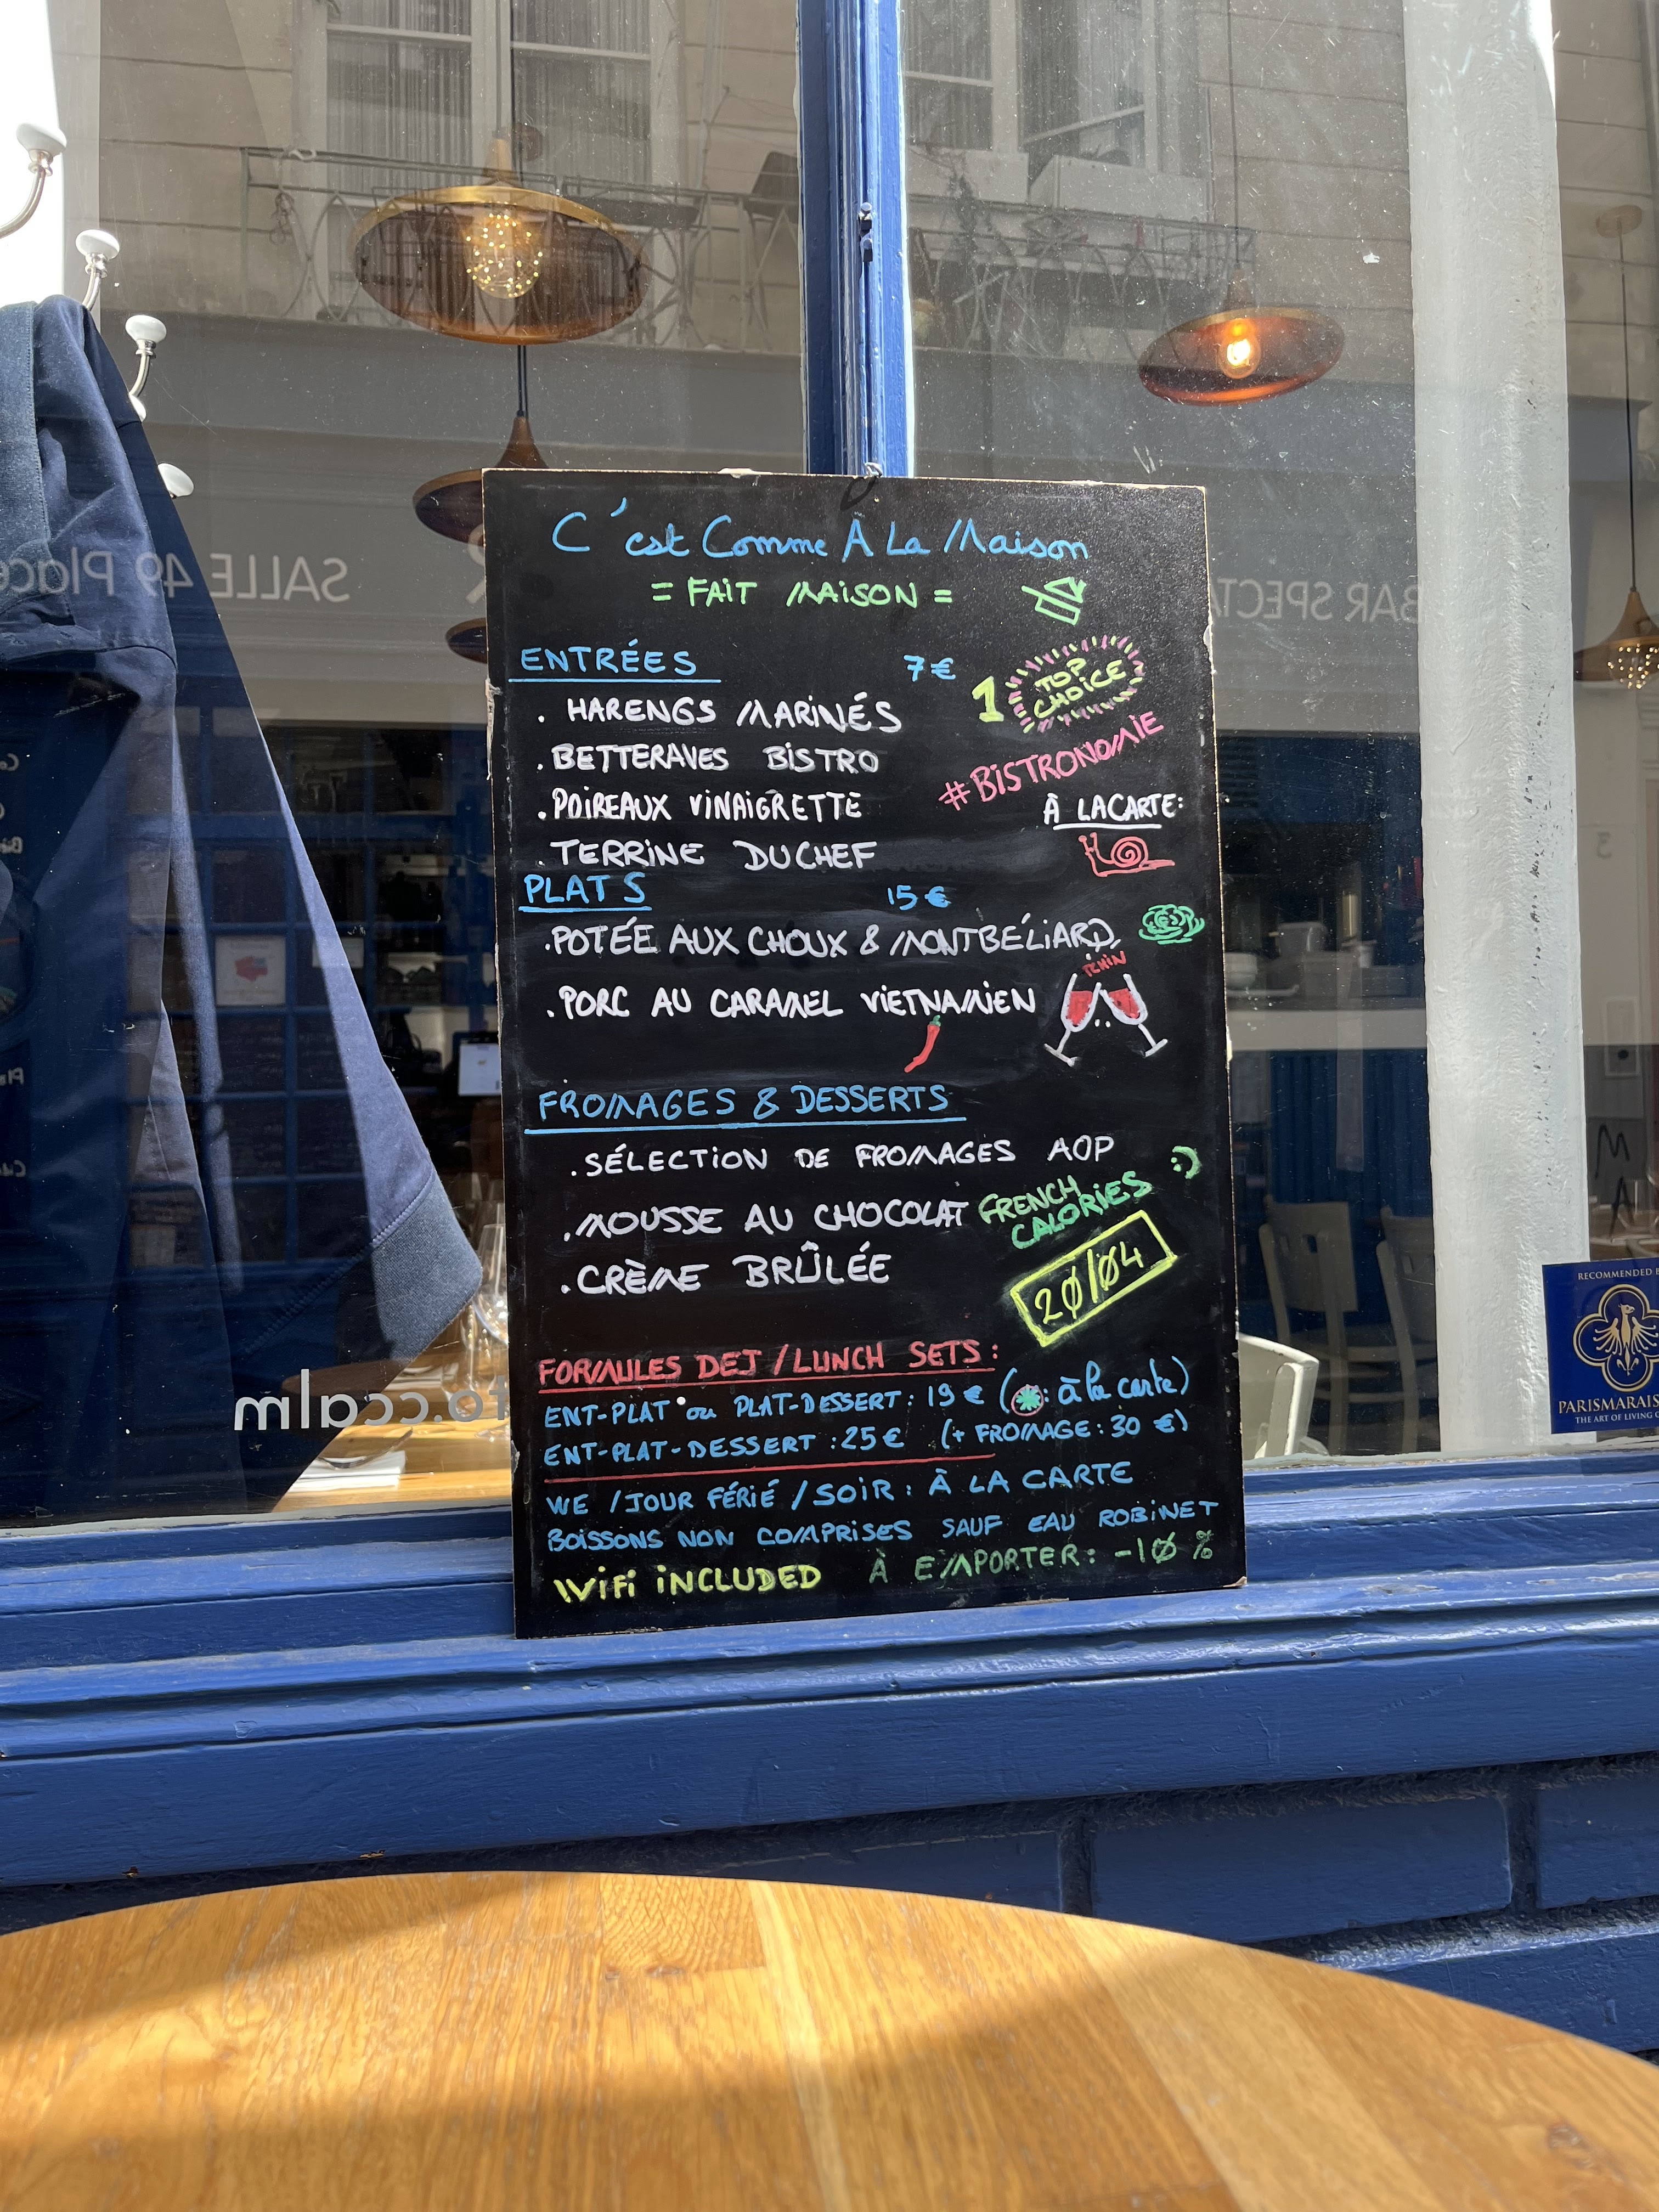 C'est Comme A La Maison
= FAIT MAISON =
ENTRÉES 7€
1 TOP CHOICE
. HARENGS MARINÉS
#BISTRONOMIE
. BETTERAVES BISTRO
. POIREAUX VINAIGRETTE
À LA CARTE:
. TERRINE DU CHEF
PLATS 15€
. POTÉE AUX CHOUX & MONTBÉLIARD
TCHIN
. PORC AU CARAMEL VIETNAMIEN
FROMAGES & DESSERTS
. SÉLECTION DE FROMAGES AOP
. MOUSSE AU CHOCOLAT
FRENCH
CALORIES :)
. CRÈME BRÛLÉE
20/04
FORMULES DEJ / LUNCH SETS:
ENT-PLAT ou PLAT-DESSERT: 19€ ( : à la carte)
ENT-PLAT-DESSERT: 25€ (+ FROMAGE: 30 €)
WE / JOUR FÉRIÉ / SOIR: À LA CARTE
BOISSONS NON COMPRISES SAUF EAU ROBINET
WIFI INCLUDED À EMPORTER: -10 %
SALLE 49 Place
BAR SPECTA
to.ccalm
RECOMMENDED B
PARISMARAIS
THE ART OF LIVING